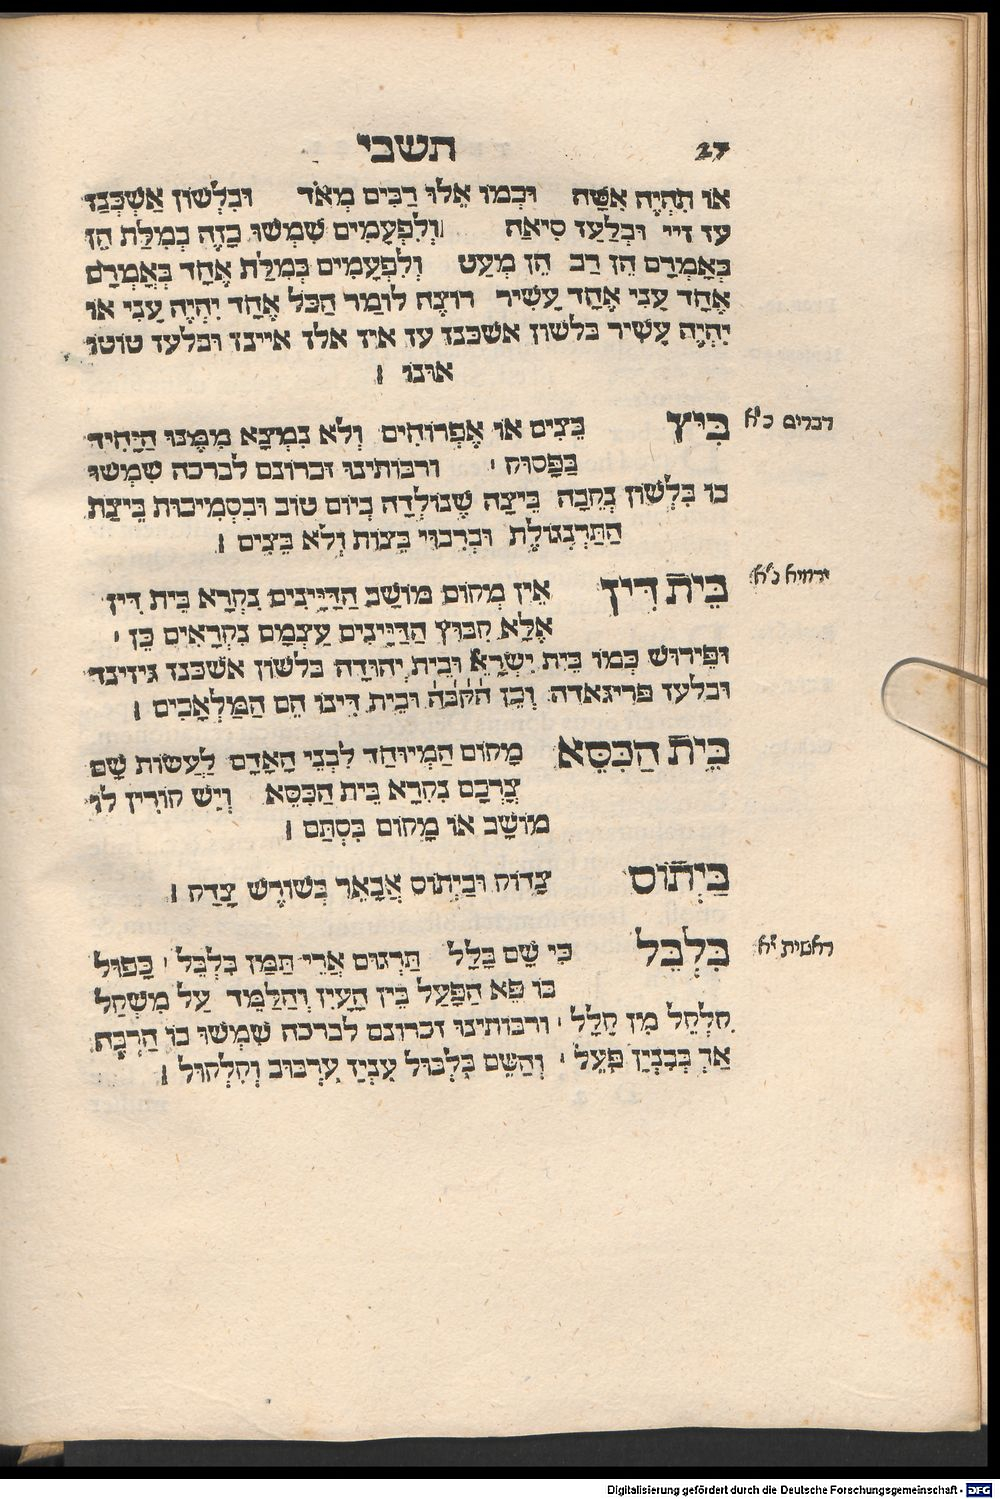 27 תשבי
או תִּהְיֶה אִשָּׁה וּכְמוֹ אֵלּוּ רַבִּים מְאֹד וּבִלְשׁוֹן אַשְׁכְּנַז
עז זיי וּבְלַעַז סִיאַה וְלִפְעָמִים שִׁמְּשׁוּ בָזֶה בְמִלַּת הֵן
כְּאָמְרָם הֵן רַב הֵן מְעַט וְלִפְעָמִים בְּמִלַּת אֶחָד כְּאָמְרָם
אֶחָד עָנִי אֶחָד עָשִׁיר רוצֶה לומַר הַכֹּל אֶחָד יִהְיֶה עָנִי או
יִהְיֶה עָשִׁיר בלשון אשכנז עז איז אלז איינז ובלעז טוטו
אונו ׀
בֵּיץ בֵּצִים אוֹ אֶפְרוֹחִים וְלֹא נִמְצָא מִמֶּנּוּ הַיָּחִיד דברים כ״א
בַּפָּסוּק ׳ ורבותינו זכרונם לברכה שִׁמְּשׁוּ
בו בִּלְשׁוֹן נְקֵבָה בֵּיצָה שֶׁנּוֹלְדָה בְיוֹם טוֹב וּבִסְמִיכוּת בֵּיצַת
הַתַּרְנְגוֹלֶת וּבְרִבּוּי בֵּצוֹת וְלֹא בֵּצִים ׀
בֵּית דִּין אֵין מְקוֹם מוֹשַׁב הַדַּיָּינִים נִקְרָא בֵּית דִּין ירמיא כ״א
אֶלָּא קִבּוּץ הַדַּיָּינִים עַצְמָם נִקְרָאִים כֵּן ׳
וּפֵירוּשׁ כְּמוֹ בֵּית יִשְׂרָאֵל וּבֵית יְהוּדָה בלשון אשכנז גיזינד
ובלעז פריגאדה וְכֵן הקב֗ה וּבֵית דִּינוֹ הֵם הַמַּלְאָכִים ׀
בֵּית הַכִּסֵּא מָקוֹם הַמְיוּחָד לִבְנֵי הָאָדָם לַעֲשׂוֹת שָׁם
צָרְכָם נִקְרָא בֵּית הַכִּסֵּא וְיֵשׁ קוֹרִין לוֹ
מוֹשָׁב אוֹ מָקוֹם בִּסְתָּם ׀
בַּיְתוֹס צָדוֹק וּבַיְתוֹס אֲבָאֵר בְּשׁוֹרֶשׁ צָדַק ׀
בִּלְבֵּל כִּי שָׁם בָּלַל תַּרְגּוּם אֲרֵי תַּמָּן בִּלְבֵּל ׳ כָּפוּל ראשית י״א
בּוֹ פֵּא הַפֹּעַל בֵּין הָעַיִן וְהַלַּמֶד עַל מִשְׁקַל
קִלְקֵל מִן קָלַל ׳ ורבותינו זכרונם לברכה שִׁמְּשׁוּ בוֹ הַרְבֵּה
אַךְ בְּבִנְיַן פִּעֵל ׳ וְהַשֵּׁם בִּלְבּוּל עִנְיַן עִרְבּוּב וְקִלְקוּל ׀
Digitalisierung gefördert durch die Deutsche Forschungsgemeinschaft - DFG